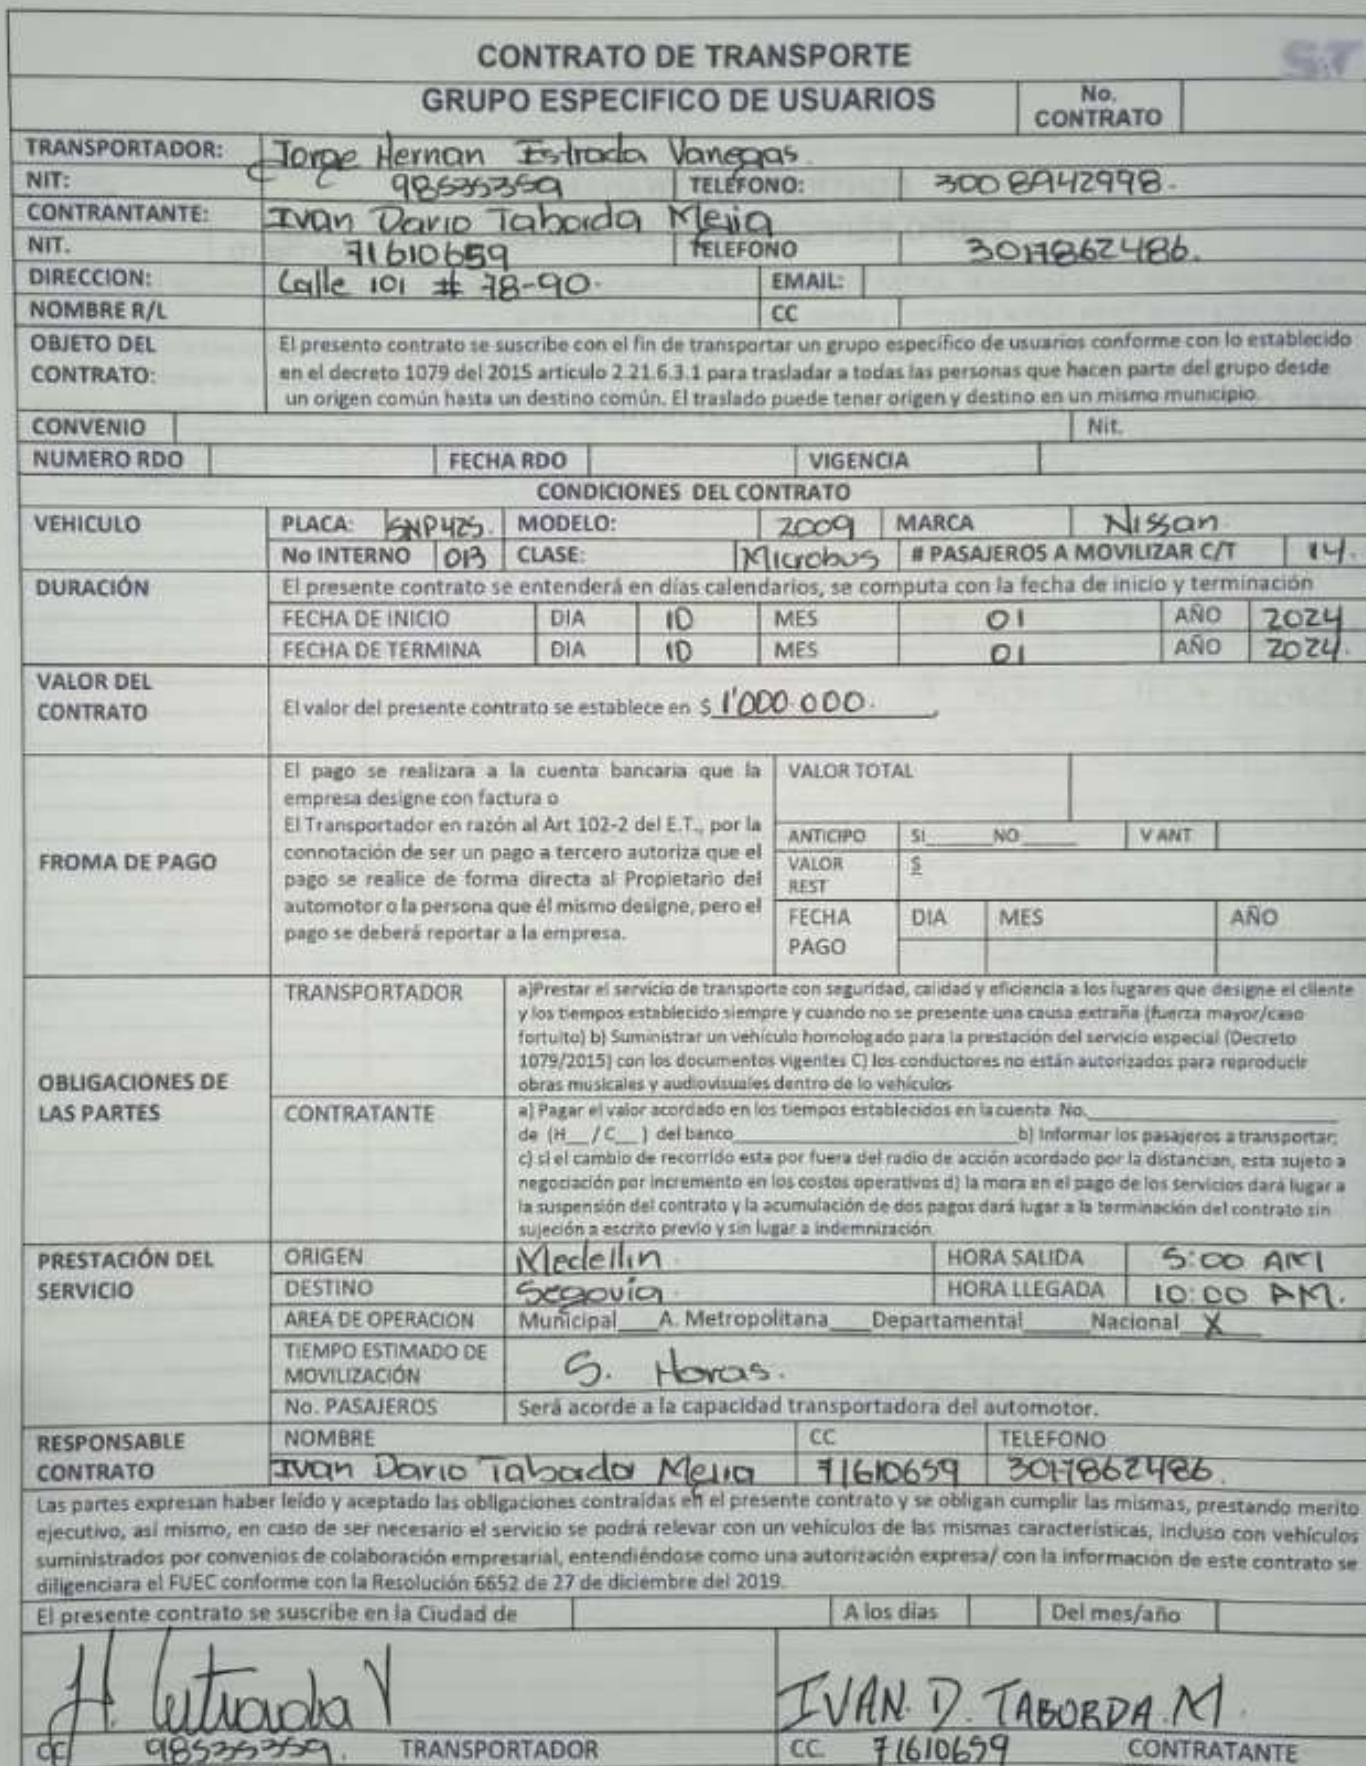 CONTRATO DE TRANSPORTE
GRUPO ESPECIFICO DE USUARIOS No. CONTRATO
TRANSPORTADOR: Jorge Hernan Estrada Vanegas
NIT: 98535359 TELEFONO: 3008942998.
CONTRANTANTE: Ivan Dario Taborda Mejia
NIT. 71610659 TELEFONO 3017862486.
DIRECCION: Calle 101 # 78-90. EMAIL:
NOMBRE R/L CC
OBJETO DEL CONTRATO: El presento contrato se suscribe con el fin de transportar un grupo específico de usuarios conforme con lo establecido
en el decreto 1079 del 2015 articulo 2.21.6.3.1 para trasladar a todas las personas que hacen parte del grupo desde
un origen común hasta un destino común. El traslado puede tener origen y destino en un mismo municipio.
CONVENIO Nit.
NUMERO RDO FECHA RDO VIGENCIA
CONDICIONES DEL CONTRATO
VEHICULO PLACA: SNP425. MODELO: 2009 MARCA Nissan.
No INTERNO 013 CLASE: Microbus # PASAJEROS A MOVILIZAR C/T 14.
DURACIÓN El presente contrato se entenderá en días calendarios, se computa con la fecha de inicio y terminación
FECHA DE INICIO DIA 10 MES 01 AÑO 2024
FECHA DE TERMINA DIA 10 MES 01 AÑO 2024.
VALOR DEL CONTRATO El valor del presente contrato se establece en $ 1'000.000.
FROMA DE PAGO El pago se realizara a la cuenta bancaria que la
empresa designe con factura o
El Transportador en razón al Art 102-2 del E.T., por la
connotación de ser un pago a tercero autoriza que el
pago se realice de forma directa al Propietario del
automotor o la persona que él mismo designe, pero el
pago se deberá reportar a la empresa.
VALOR TOTAL
ANTICIPO SI____ NO____ V ANT
VALOR REST $
FECHA PAGO DIA MES AÑO
OBLIGACIONES DE LAS PARTES
TRANSPORTADOR a)Prestar el servicio de transporte con seguridad, calidad y eficiencia a los lugares que designe el cliente
y los tiempos establecido siempre y cuando no se presente una causa extraña (fuerza mayor/caso
fortuito) b) Suministrar un vehículo homologado para la prestación del servicio especial (Decreto
1079/2015) con los documentos vigentes C) los conductores no están autorizados para reproducir
obras musicales y audiovisuales dentro de lo vehículos
CONTRATANTE a) Pagar el valor acordado en los tiempos establecidos en la cuenta No.____
de (H__ / C__ ) del banco____ b) Informar los pasajeros a transportar;
c) si el cambio de recorrido esta por fuera del radio de acción acordado por la distancian, esta sujeto a
negociación por incremento en los costos operativos d) la mora en el pago de los servicios dará lugar a
la suspensión del contrato y la acumulación de dos pagos dará lugar a la terminación del contrato sin
sujeción a escrito previo y sin lugar a indemnización.
PRESTACIÓN DEL SERVICIO ORIGEN Medellin. HORA SALIDA 5:00 AM
DESTINO Segovia. HORA LLEGADA 10:00 AM.
AREA DE OPERACION Municipal___A. Metropolitana___Departamental____Nacional X
TIEMPO ESTIMADO DE MOVILIZACIÓN 5. Horas.
No. PASAJEROS Será acorde a la capacidad transportadora del automotor.
RESPONSABLE CONTRATO NOMBRE CC TELEFONO
Ivan Dario Taborda Mejia 71610659 3017862486.
Las partes expresan haber leído y aceptado las obligaciones contraídas en el presente contrato y se obligan cumplir las mismas, prestando merito
ejecutivo, así mismo, en caso de ser necesario el servicio se podrá relevar con un vehículos de las mismas características, incluso con vehículos
suministrados por convenios de colaboración empresarial, entendiéndose como una autorización expresa/ con la información de este contrato se
diligenciara el FUEC conforme con la Resolución 6652 de 27 de diciembre del 2019.
El presente contrato se suscribe en la Ciudad de A los días Del mes/año
IVAN. D. TABORDA. M.
CC 98535359. TRANSPORTADOR CC. 71610659 CONTRATANTE